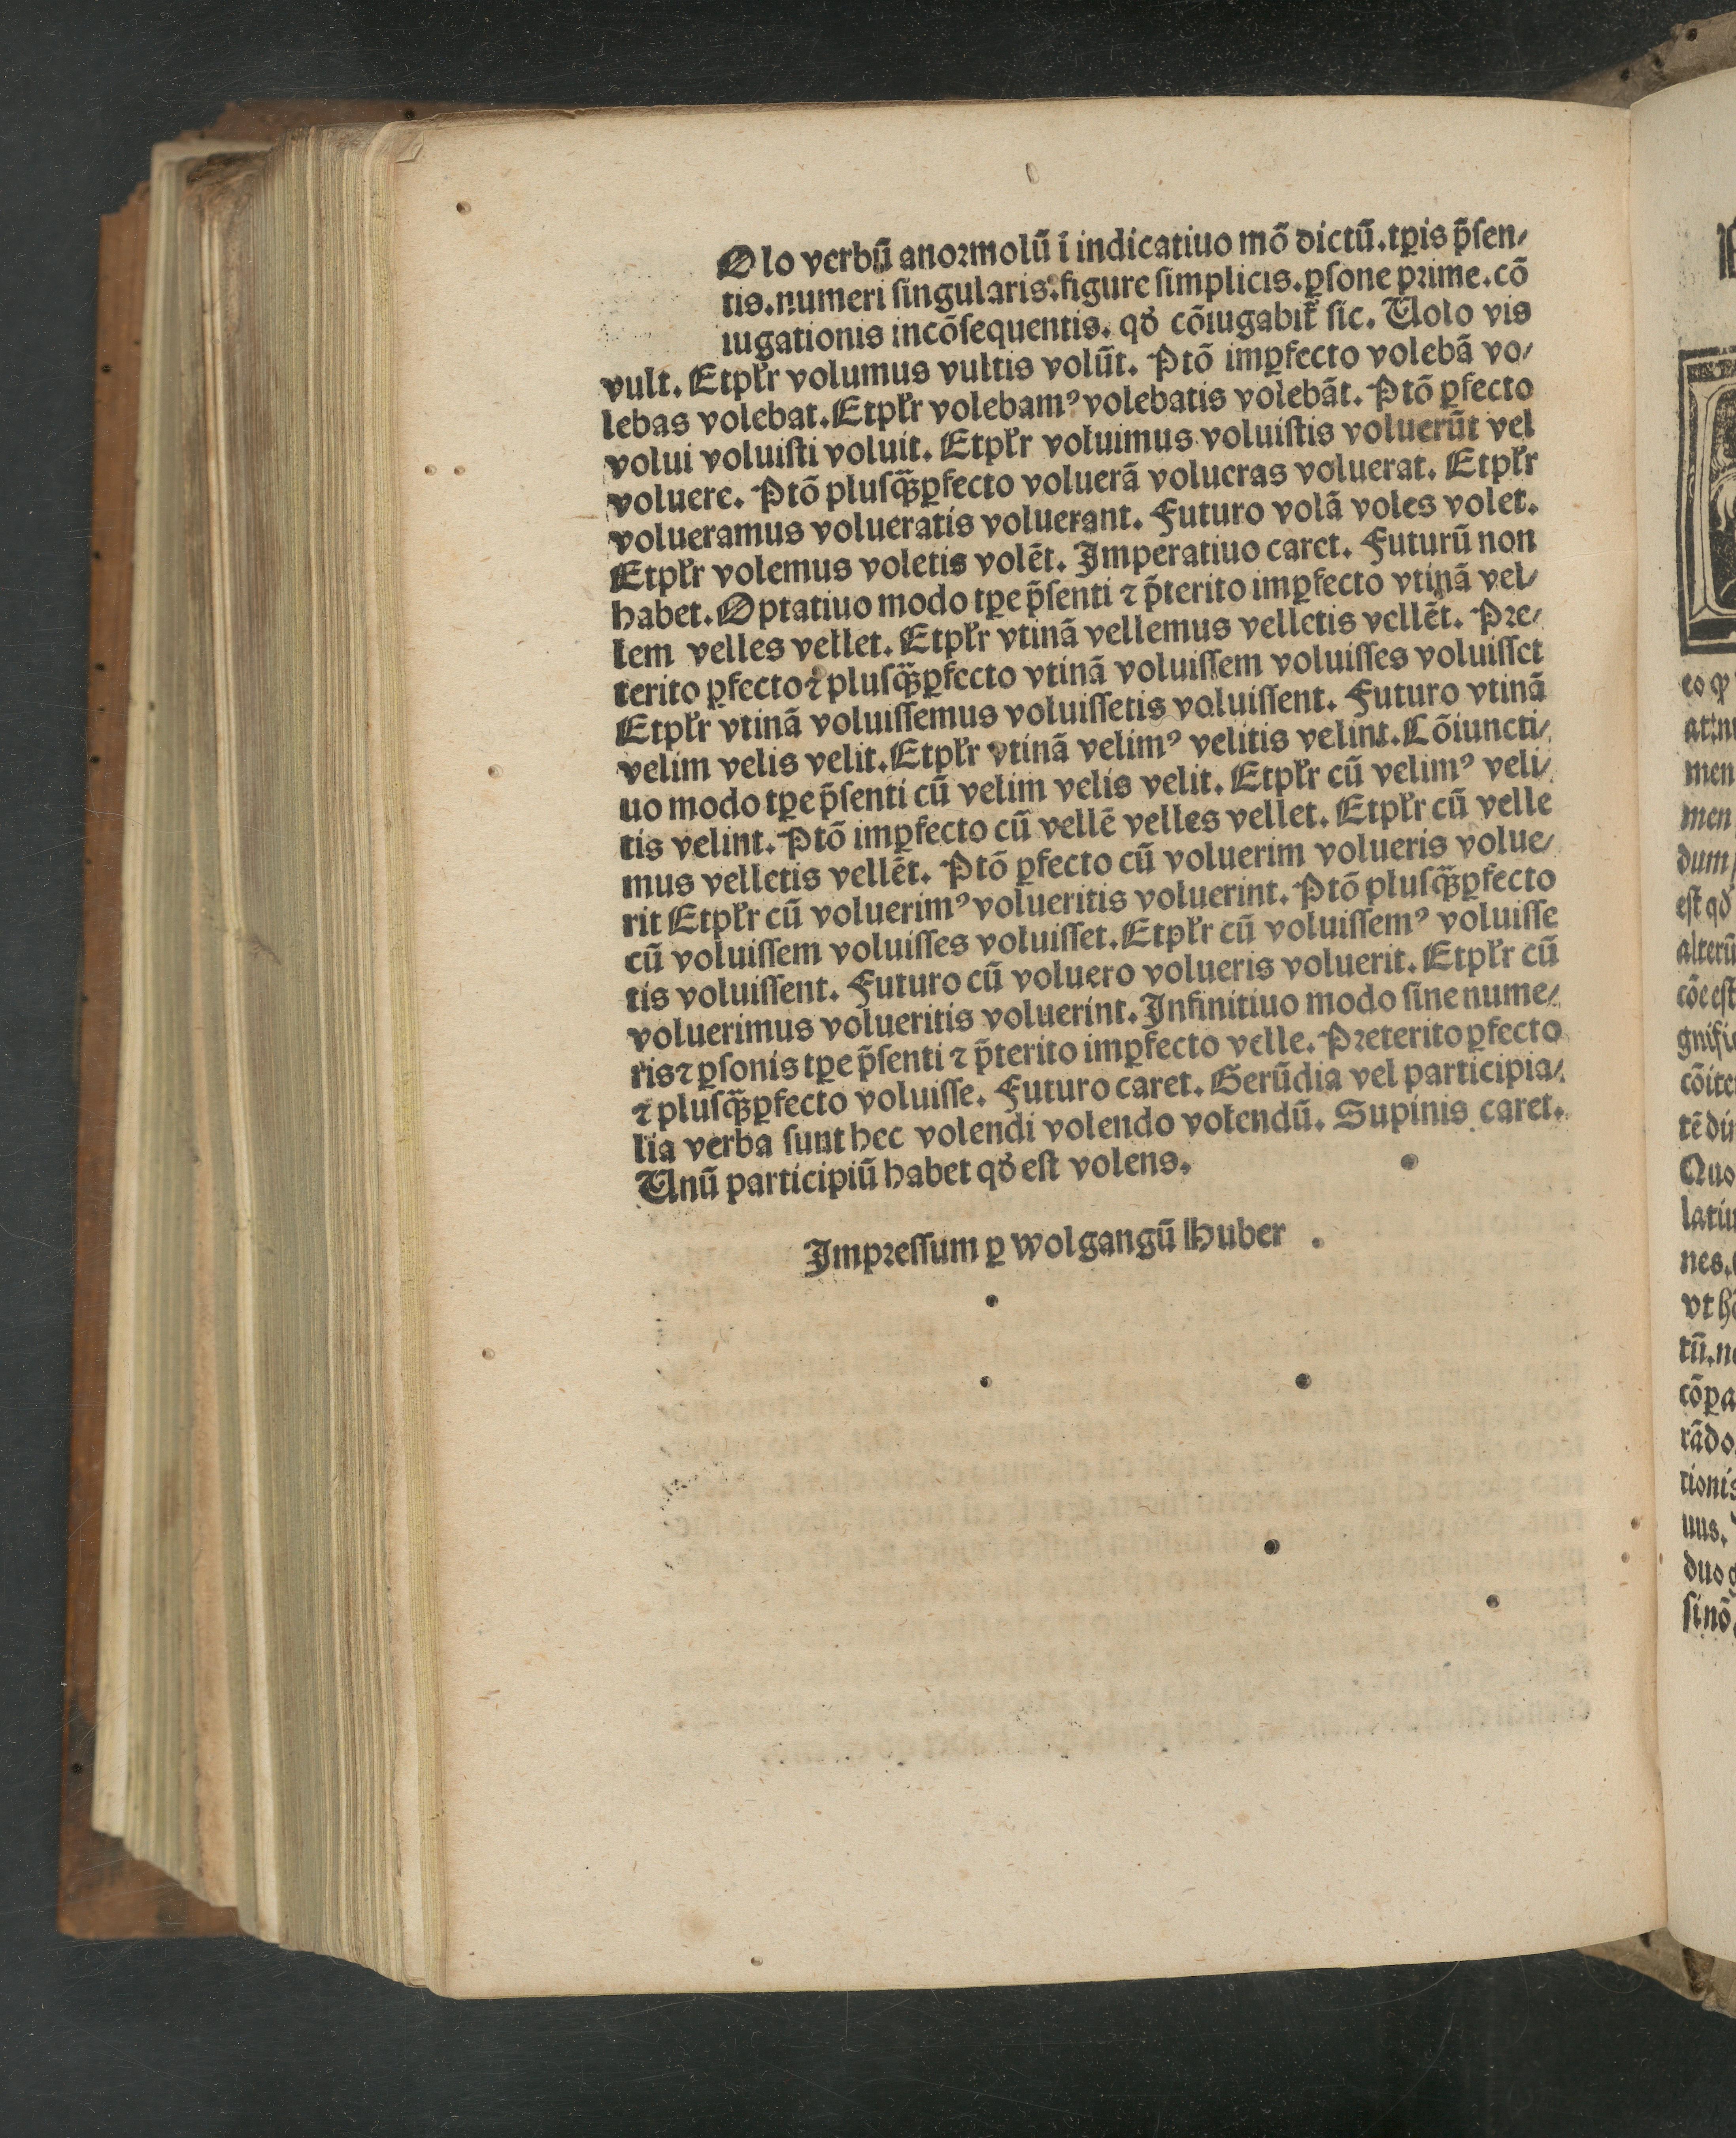 Olo verbū anormolū ī indicatiuo mō dictū.tꝑis p̄sen⸗
tis.numeri singularis.figure simplicis.ꝑsone prime.cō
iugationis incōsequentis. qḋ cōiugabiť sic. Uolo vis
vult. Etpłr volumus vultis volūt. Ptō imꝑfecto volebā vo⸗
lebas volebat.Etpłr volebamꝰ volebatis volebāt. Ptō ꝑfecto
volui voluisti voluit. Etpłr voluimus voluistis voluerūt vel
voluere. Ptō plusq̄ꝑfecto voluerā volueras voluerat. Etpłr
volueramus volueratis voluerant. Futuro volā voles volet.
Etpłr volemus voletis volēt. Imperatiuo caret. Futurū non
habet.Optatiuo modo tꝑe p̄senti ⁊ p̄terito imꝑfecto vtinā vel⸗
lem velles vellet. Etpłr vtinā vellemus velletis vellēt. Pre⸗
terito ꝑfecto⁊ plusq̄ꝑfecto vtinā voluissem voluisses voluisset
Etpłr vtinā voluissemus voluissetis voluissent. Futuro vtinā
velim velis velit.Etpłr vtinā velimꝰ velitis velint.Cōiuncti⸗
uo modo tꝑe p̄senti cū velim velis velit. Etpłr cū velimꝰ veli⸗
tis velint. Ptō imꝑfecto cū vellē velles vellet. Etpłr cū velle
mus velletis vellēt. Ptō ꝑfecto cū voluerim volueris volue⸗
rit Etpłr cū voluerimꝰ volueritis voluerint. Ptō plusq̄ꝑfecto
cū voluissem voluisses voluisset.Etpłr cū voluissemꝰ voluisse
tis voluissent. Futuro cū voluero volueris voluerit. Etpłr cū
voluerimus volueritis voluerint.Infinitiuo modo sine nume⸗
ris⁊ ꝑsonis tꝑe p̄senti ⁊ p̄terito imꝑfecto velle. Preterito ꝑfecto
⁊ plusq̄ꝑfecto voluisse. Futuro caret. Gerūdia vel participia⸗
lia verba sunt hec volendi volendo volendū. Supinis caret.
Unū participiū habet qḋ est volens.
Impressum ꝑ wolgangū Huber .
eo
men
men
dum
est qḋ
alterū
cōe est
tē
Quo
nes.
vt
tū.
rādo.
uus.
duo